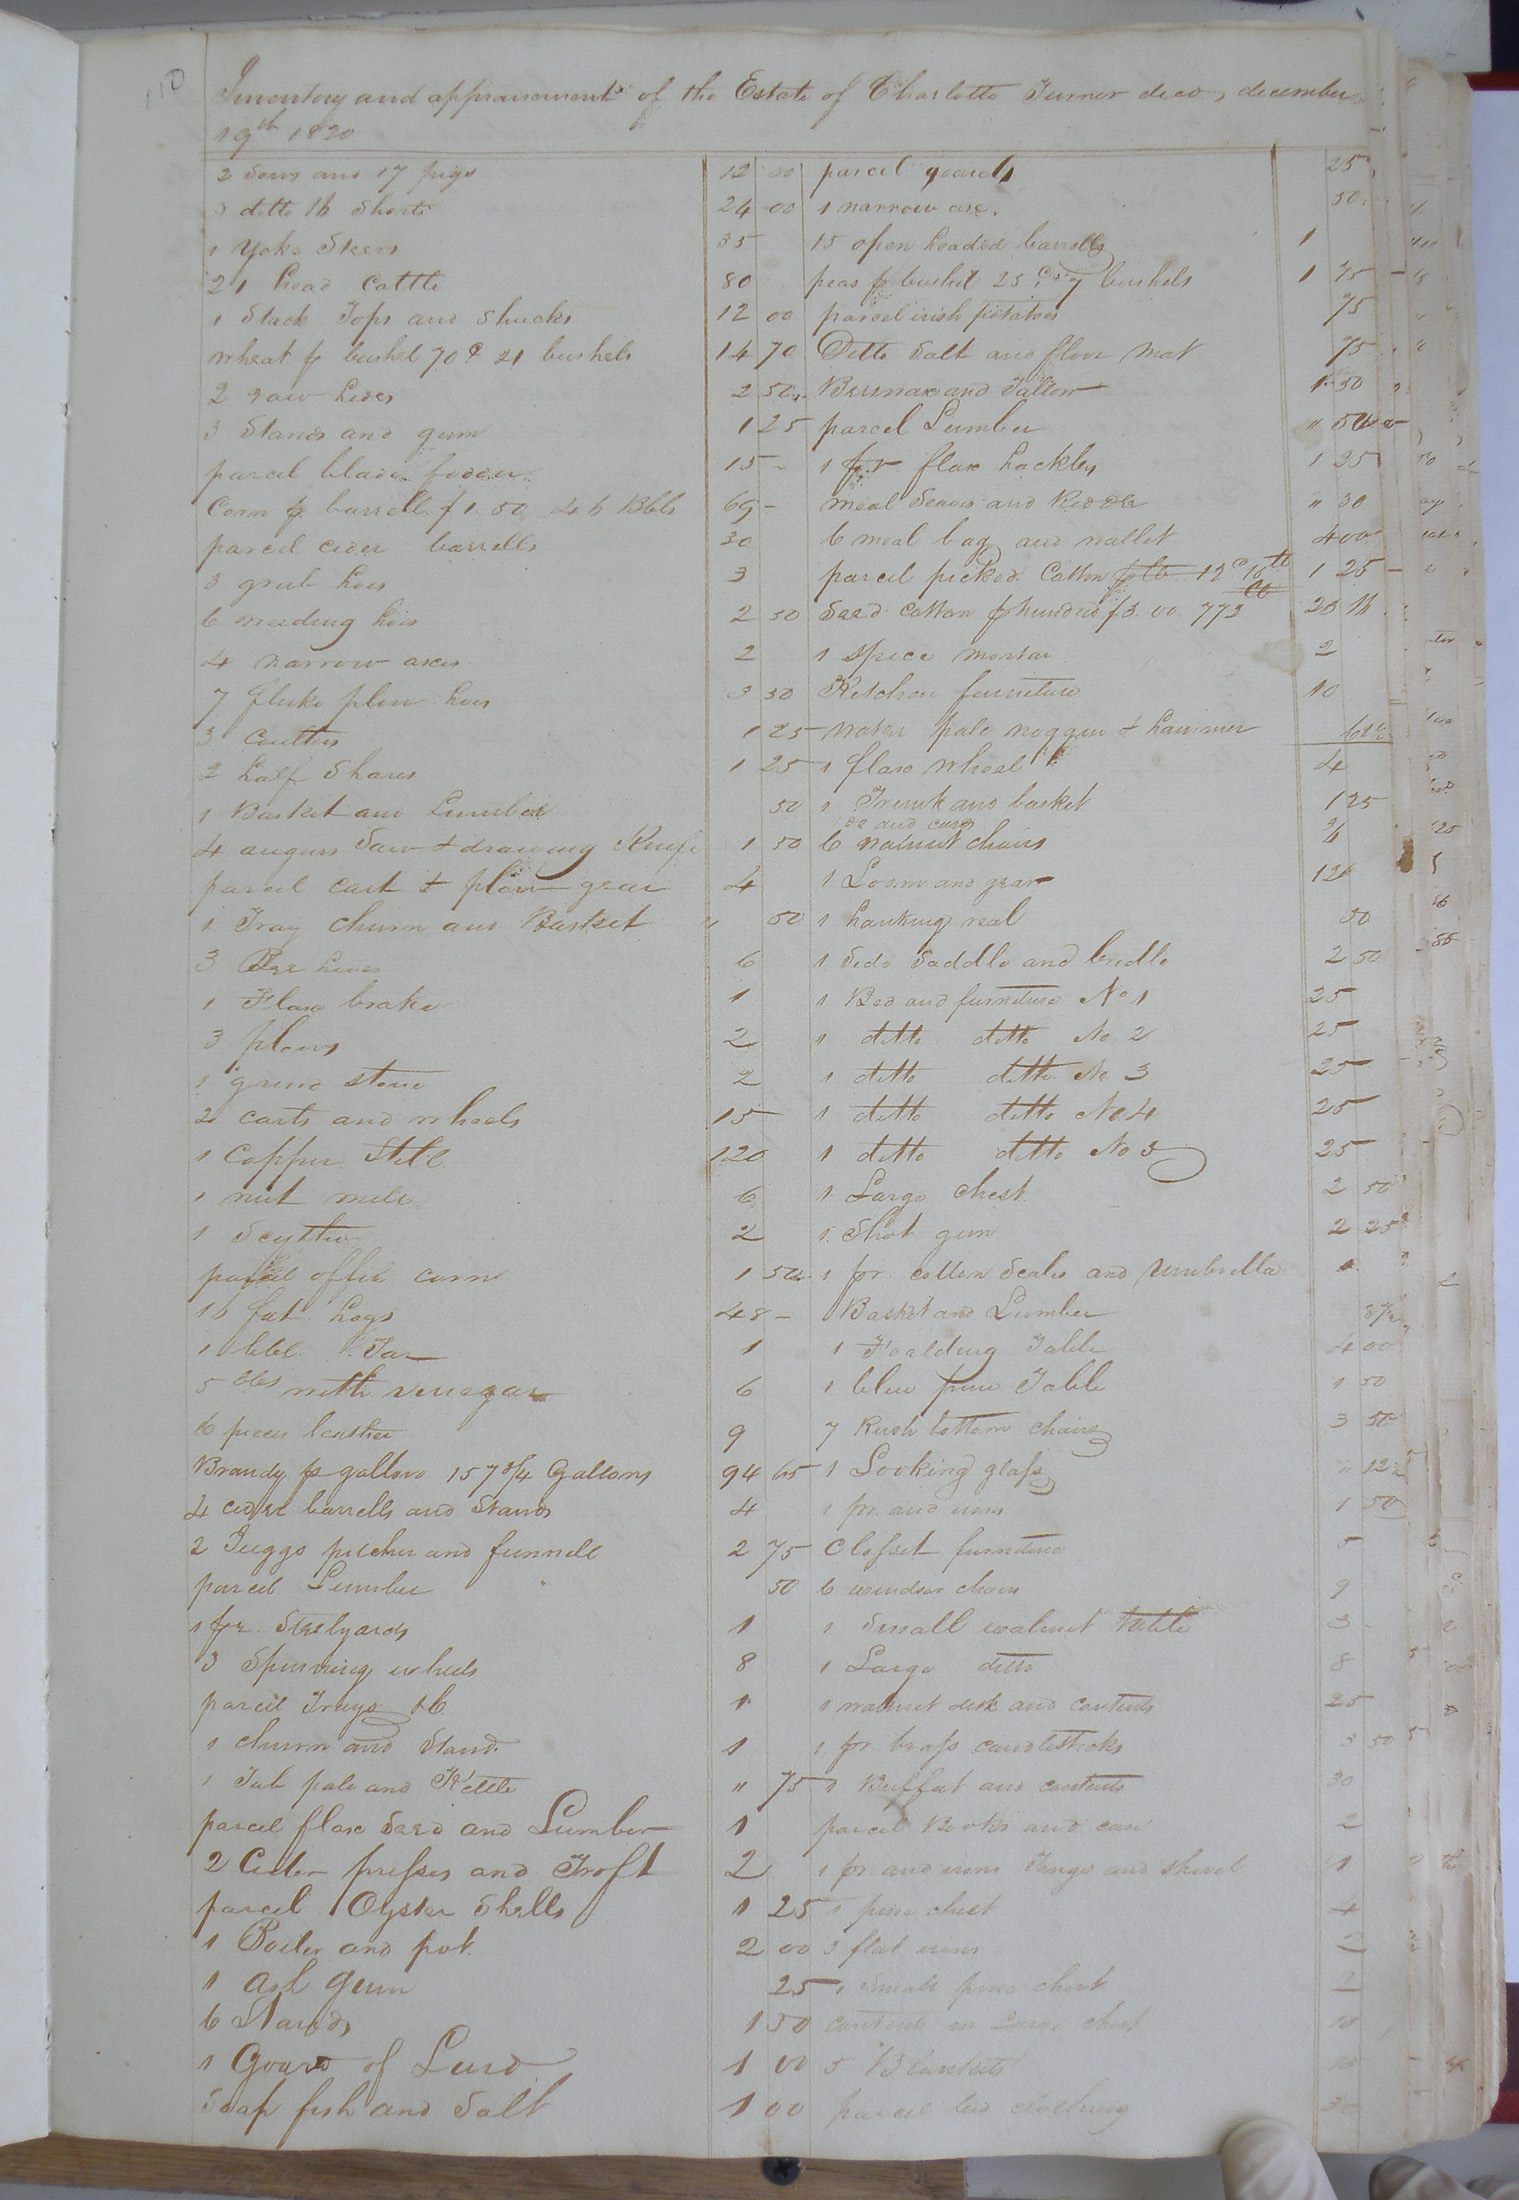 110
Inventory and appraisement of the Estate of Charlotte Turner decd, december
19th 1820
2 Sows and 17 pigs 12 00
3 ditto 16 Shoats 24 00
1 Yoke Steers 35
21 head Cattle 80
1 Stack Tops and Shucks 12 00
wheat p bushel 70 c 21 bushels 14 70
2 raw hides 2 50
3 Stands and gum 1 25
parcel blade fodder 15 -
Corn p barrell $1.50 46 Bbls 69 -
parcel cider barrells 30
3 grub hoes 3
6 weeding hoes 2 50
4 narrow axes 2
7 fluke plow hoes 3 30
3 Coulters 1 25
2 half Shares 1 25
1 Basket and Lumber 50
4 augurs Saw & drawing Knife 1 50
parcel cart & plow gear 4
1 Tray churn and Basket " 50
3 Bee hives 6
1 Flax brake 1
3 plows 2
1 grind stone 2
2 carts and wheels 15
1 Copper Still 120
1 nut mill 6
1 Scythe 2
parcel offel corn 1 50
16 fat hogs 48 -
1 bbl. Tar 1
5 bbls with vinegar 6
6 pieces leather 9
Brandy p gallon 157 3/4 Gallons 94 65
4 cider barrells and Stands 4
2 Juggs pitcher and funnell 2 75
parcel Lumber 50
1 pr Steelyards 1
3 Spinning wheels 8
parcel Trays &c 1
1 churn and Stand 1
1 Tub pale and Kettle " 75
parcel flax Seed and Lumber 1
2 Cider presses and Troft 2
parcel Oyster Shells 1 25
1 Boiler and pot 2 00
1 ash Gum 25
6 Stands 1 50
1 Gourd of Lard 1 00
Soap fish and Salt 1 00
parcel gourds 25
1 narrow axe. 50
15 open headed barrells 1
peas p bushel 25 cs 7 bushels 1 75
parcel irish potatoes 75
Ditto Salt and flour Mat 75
Beeswax and Tallow 1 50
parcel Lumber " 50
1 pr flax hackles 1 25
meal Seaves and Redder " 30
6 meal bag and wallet 4 00
parcel picked Cotton p lb 12 c 10 lb 1 25
Seed Cotton p hundred $3.00 772 23 16
1 Spice mortar 2
Kitchen furniture 10
water pale noggin & hammer 62 1/2
1 flax wheel 4
1 Trunk and basket 1 25
6 walnut chairs
1 Loom and gear 12
1 hanking reel 50
1 Side Saddle and bridle 2 50
1 Bed and furniture No 1 25
1 ditto ditto No 2 25
1 ditto ditto No 3 25
1 ditto ditto No 4 25
1 ditto ditto No 5 25
1 Large Chest 2 50
1 Shot gun 2 25
1 pr cotton Scales and Umbrella 1
Basket and Lumber 87 1/2
1 Foalding Table 4 00
1 blue pine Table 1 50
7 Rush bottom chairs 3 50
1 Looking glass " 12 1/2
1 pr and irons 1 50
Closset furniture 5
6 windsor chairs 9
1 Small walnut table 3
1 Large ditto 8
1 walnut desk and contents 25
1 pr brass candlesticks 3 50
1 Buffat and contents 30
parcel Books and case 2
1 pr and irons Tongs and shovel 1
1 pine chest 4
3 flat irons 2
1 Small pine chest 2
contents in Large chest 10
5 Blankets 15
parcel bed clothing 30